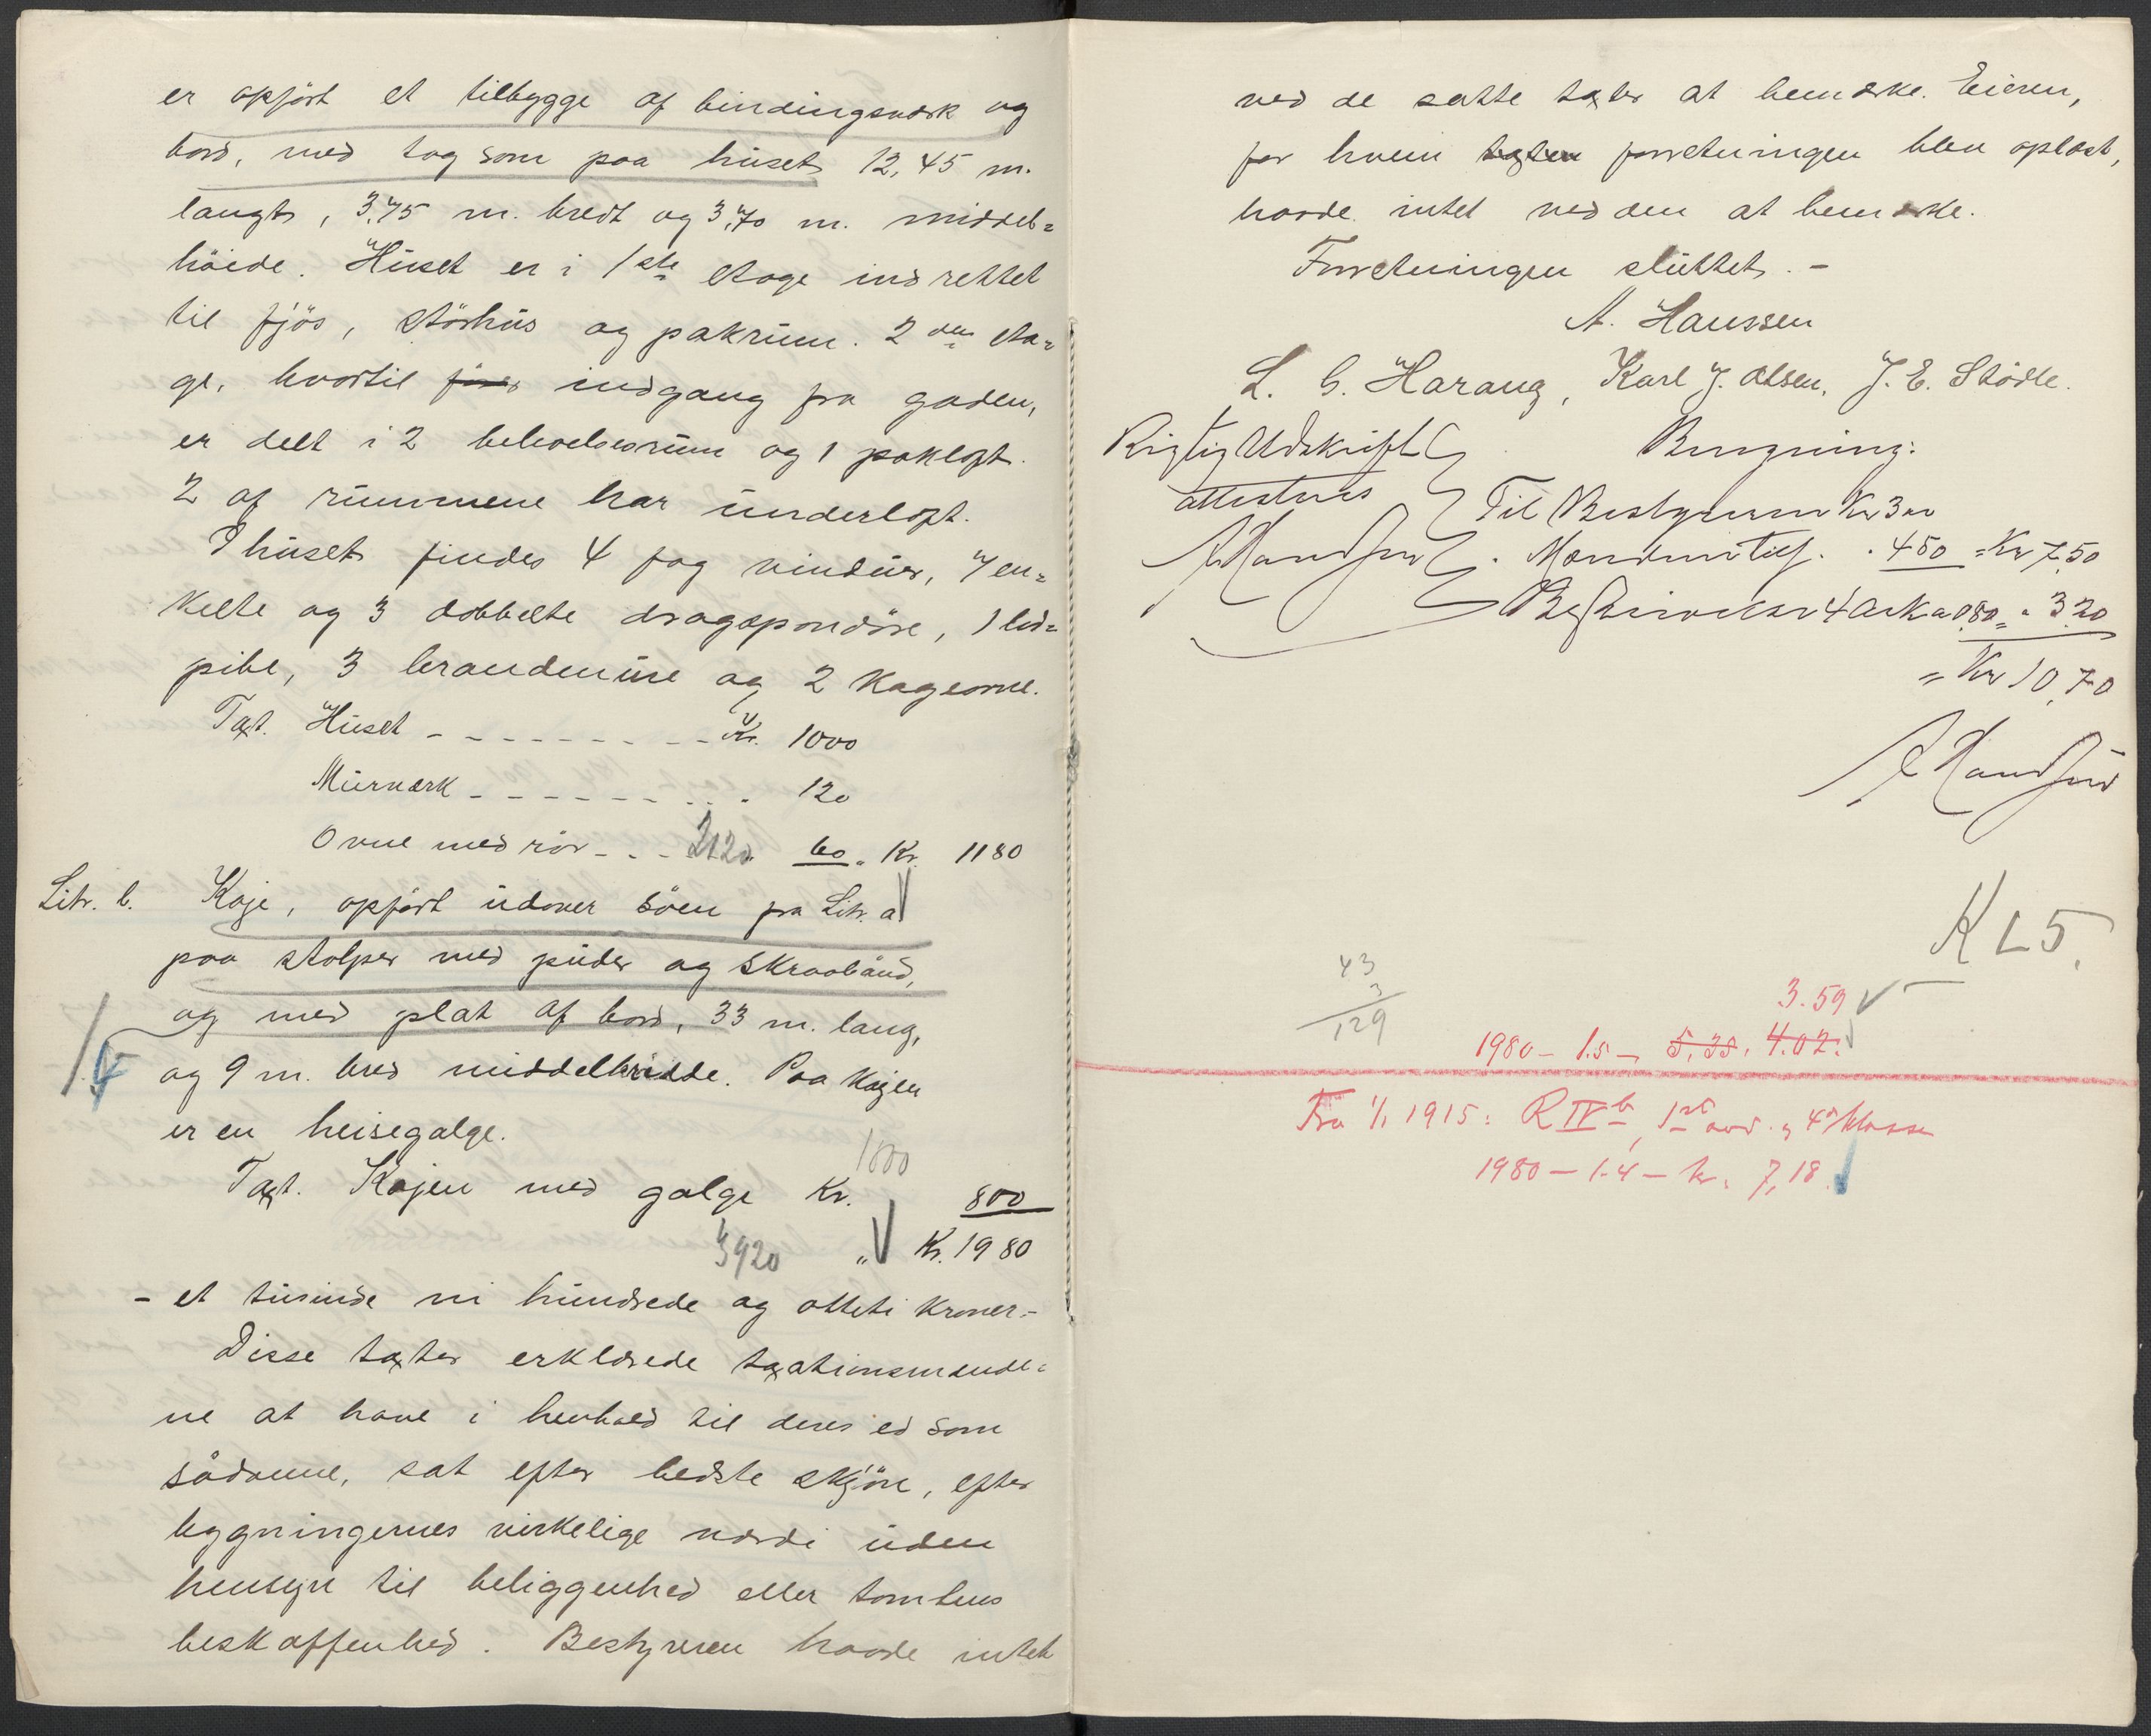 er opført et tilbygge af bindingsværk og
bord, med tag som paa huset, 12,45 m.
langt, 3,75 m. bredt og 3,70 m. middel=
høide. Huset er i 1ste etage indrettet
til fjøs, størhus og pakrum. 2den eta=
ge, hvortil indgang fra gaden,
er delt i 2 beboelsesrum og 1 pakloft.
2 af rummene har underloft.
I huset findes 4 fag vinduer, 7 en=
kelte og 3 dobbelte dragspondøre, 1 led=
pibe, 3 brandmure og 2 kageovne.
Taxt. Huset - - - - - - - - Kr. 1000
Murværk - - - - - - - - - 120
Ovne med rør - - - 2120 60 = Kr. 1180
Litr. b. Kaje, opført udover søen fra Litr. a
paa stolper med puder og skraabånd,
og med plat af bord, 33 m. lang,
og 9 m. bred middelbredde. Paa kajen
er en heisegalge.
1800
Taxt. Kajen med galge Kr. 800
3920 = Kr. 1980
- et tusinde ni hundrede og otteti kroner.-
Disse taxter erklærede taxationsmænde=
ne at have i henhold til deres ed som
sådanne, sat efter bedste skjøn, efter
bygningernes virkelige værdi uden
hensyn til beliggenhed eller tomtens
beskaffenhed. Bestyreren havde intet
ved de satte taxter at bemærke. Eieren,
for hvem taxten forretningen blev oplæst,
havde intet ved den at bemærke.
Forretningen sluttet. -
A. Hanssen
L. C. Harang, Karl J. Olsen, J. E. Stødle.
Rigtig Udskrift
attesteres
A Hanssen
Beregning:
Til Bestyreren Kr 3 00
" Mændene Tilf. " 4 50 = Kr 7,50
Beskrivelsen 4 Ark a 0,80 = " 3 20
= Kr 10,70
A Hanssen
K L 5.
43
3
129
3.59
1980 - 1.5 - 5,35. 4.02.
Fra 1/1 1915: R IVb, 1st avd. og 4d klasse
1980 - 1.4 - kr. 7,18.